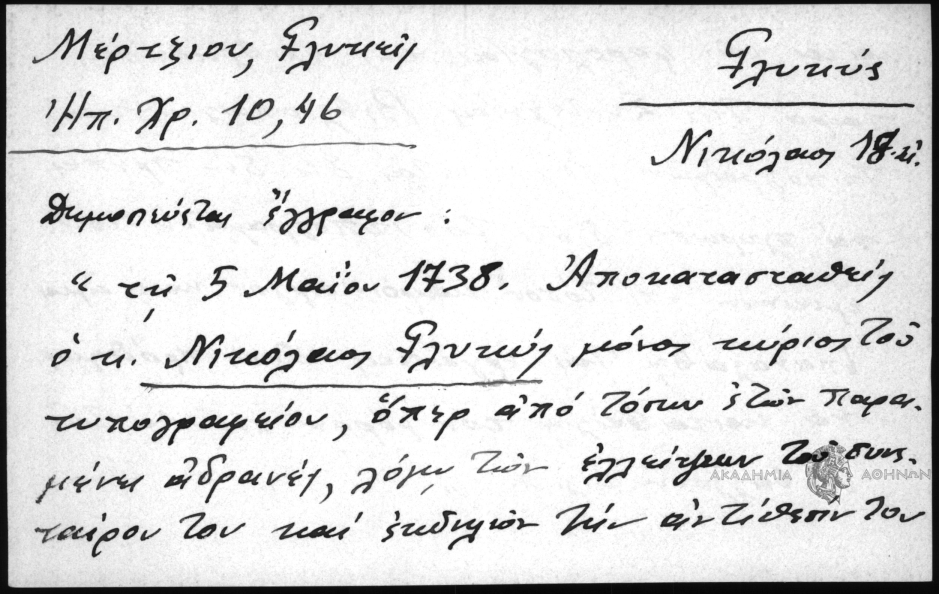 Μέρτζιου, Γλυκείς
Ἠπ. Χρ. 10, 46
Γλυκύς
Νικόλαος 18 αἰ.
Δημοσιεύεται ἔγγραφον :
“ τῇ 5 Μαΐου 1738. Ἀποκατασταθείς
ὁ κ. Νικόλαος Γλυκύς μόνος κύριος τοῦ
τυπογραφείου, ὅπερ ἀπό τόσων ἐτῶν παρα-
μένει ἀδρανές, λόγῳ τῶν ἐλλείψεων τοῦ συνε-
ταίρου του καί ἐκδηλῶν τήν ἀντίθεσιν του
ΑΚΑΔΗΜΙΑ ΑΘΗΝΩΝ